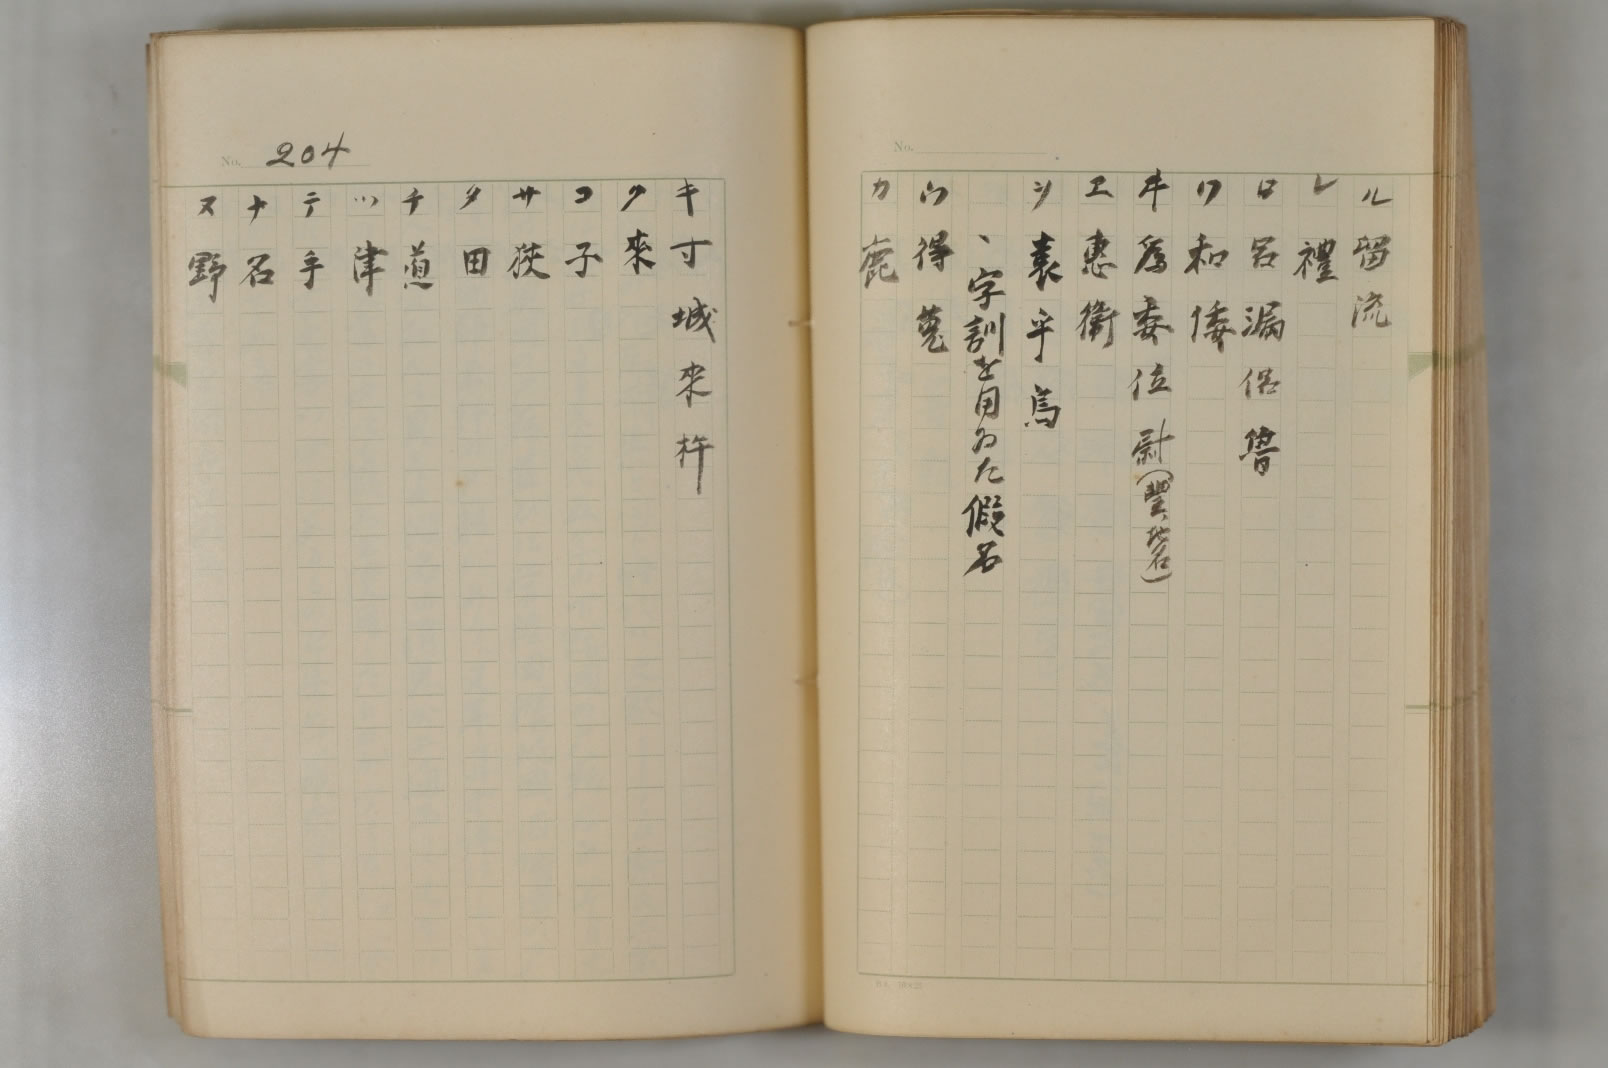 ル 留 流
レ 禮
ロ 呂 漏 侶 魯
ワ 和 倭
ヰ 爲 委 位 尉(豐、地名)
ヱ 惠 衞
ヲ 袁 乎 烏
、字訓を用ゐた假名
ウ 得 菟
カ 鹿
No.
204
No.
キ 寸 城 來 杵
ク 來
コ 子
サ 狹
タ 田
チ 道
ツ 津
テ 手
ナ 名
ヌ 野